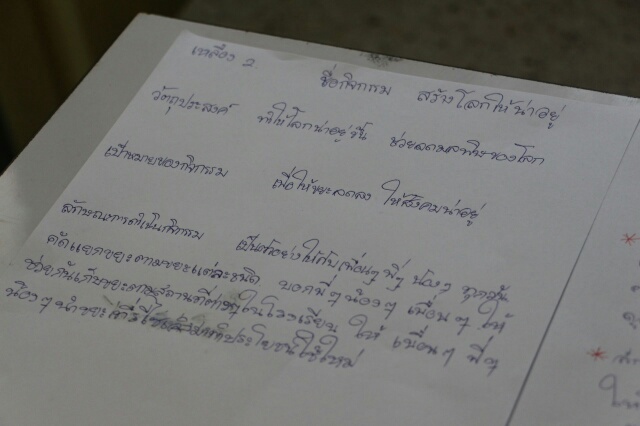 เหลือง 2
ชื่อกิจกรรม สร้างโลกให้น่าอยู่
วัตถุประสงค์ ทำให้โลกน่าอยู่ขึ้น ช่วยลดมลพิษของโลก
เป้าหมายของกิจกรรม เพื่อให้ขยะลดลง ให้สังคมน่าอยู่
ลักษณะการดำเนินกิจกรรม เป็นตัวอย่างให้กับเพื่อนๆ พี่ๆ น้องๆ ทุกชั้น
คัดแยกขยะตามขยะแต่ละชนิด บอกพี่ๆ น้องๆ เพื่อนๆ ให้
ช่วยกันเก็บขยะตามสถานที่ต่างๆ ในโรงเรียน ให้ เพื่อนๆ พี่ๆ
น้องๆ นำขยะ ประโยชน์ใช้ใหม่